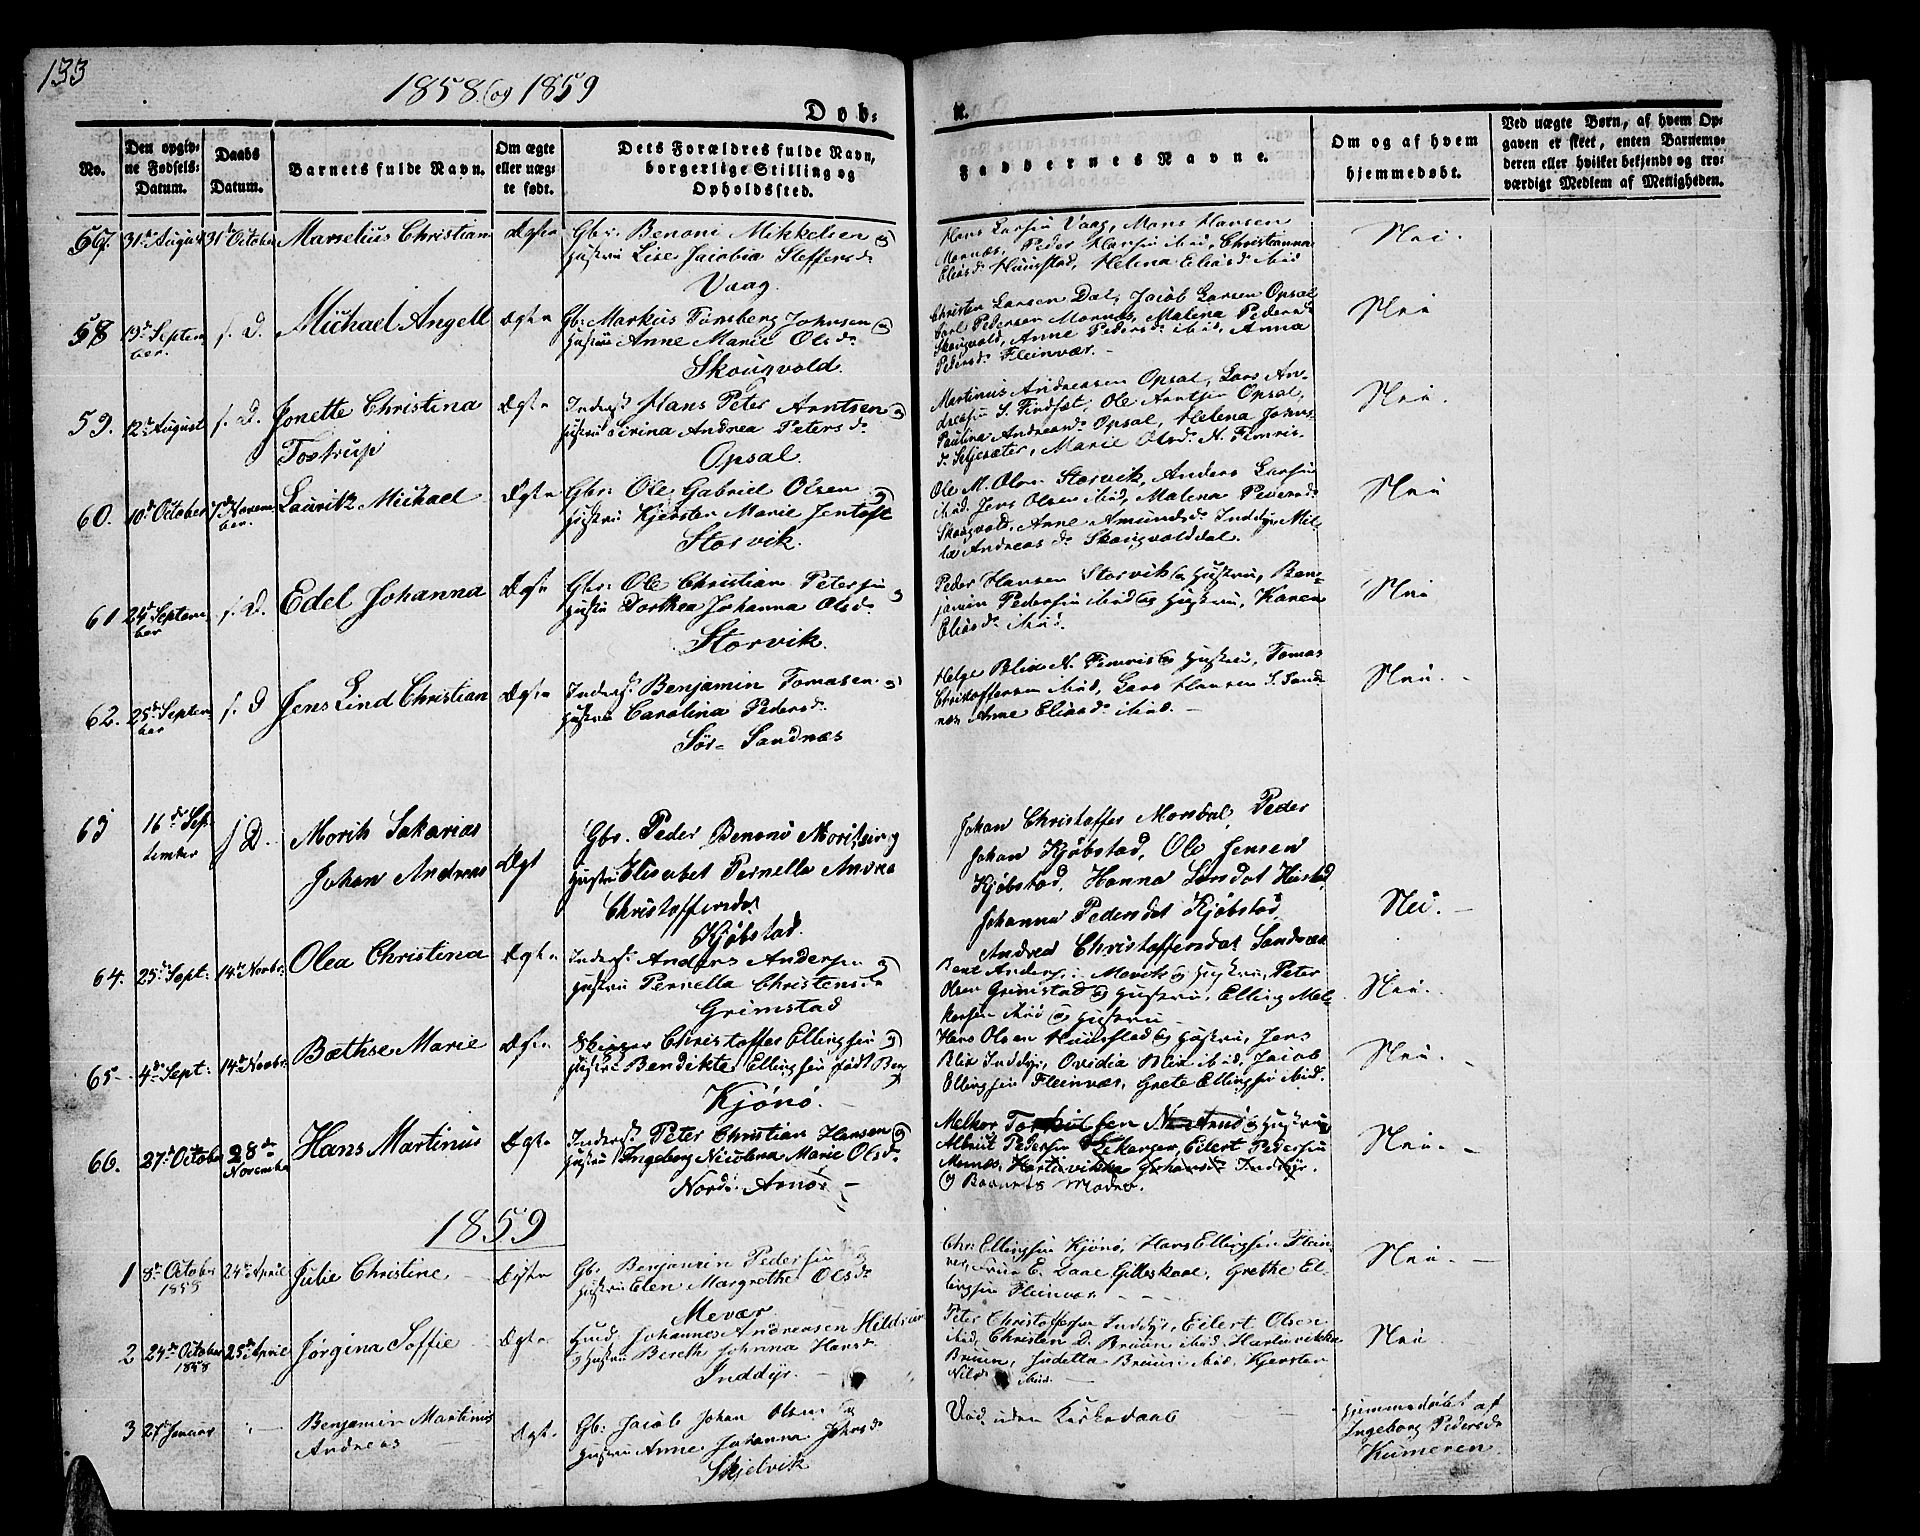 133
1858 og 1859
Døb-
te.
No.
Den opgiv-
ne Fødsels-
Datum.
Daabs
Datum.
Barnets fulde Navn.
Om ægte
eller uæg-
te født.
Dets Forældres fulde Navn,
borgerlige Stilling og
Opholdssted.
Faddernes Navne.
Om og af hvem
hjemmedøbt.
Ved uægte Børn, af hvem Op-
gaven er skeet, enten Barnemo-
deren eller hvilket bekjendt og tro-
værdigt Medlem af Menigheden.
57. 31te August 31te October Marselius Christian Ægte Gbr: Benoni Mikkelsen og
Hustru Lise Jacobia Steffensd.
Vaag.
Hans Larsen Vaag, Mons Hansen
Mornæs, Peder Hansen ibid, Christianna
Eliasd. Huustad, Helena Eliasd. ibid
Nei.
58 19de Septem
ber. s. D. Michael Angell Ægte Gb: Markus Tønsberg Johnsen og
Hustru Anne Marie Olsd.
Skougvold.
Christen Larsen Dal, Jacob Larsen Opsal
Carl Pedersen Mornes, Malena Pedersd.
Skougvold, Anne Pedersd. ibid, Anna
Pedersd. Fleinvær.
Nei
59. 12te August s. D. Jonette Christina
Tostrup Ægte Inderst Hans Peter Arntsen og
Hustru Sirina Andrea Petersd.
Opsal.
Martinus Andreasen Opsal, Lars An-
dreasen S. Findset, Ole Arntsen Opsal,
Paulina Andreasd. Opsal, Helena Johns-
d. Seljesæter, Marie Olsd. N. Fimris
Nei.
60. 10de October 7de Novem
ber. Lauritz Michael Ægte Gbr: Ole Gabriel Olsen og
Hustru Kjersten Marie Jentoft
Storvik.
Ole M. Olsen Storvik, Anders Larsen
ibid, Jens Olsen ibid, Malena Pedersd.
Skougvold, Anne Amundsd. Inddyr, Mil-
la Andreas d. Skougvolddal.
Nei
61 24de Septem
ber s. D. Edel Johanna Ægte Gbr: Ole Christian Petersen og
Hustru Dorthea Johanna Olsd.
Storvik.
Peder Hansen Storvik og Hustru, Ben-
jamin Pedersen ibid og Hustru, Karen
Eliasd. ibid.
Nei
62. 25de Septem
ber s. D Jens Lind Christian Ægte Inderst. Benjamin Tomasen og
Hustru Carolina Pedersd.
Sør- Sandnæs
Helge Blix N. Fimris og Hustru, Tomas
Christoffersen ibid, Lars Hansen S. Sand-
næs Anne Eliasd. ibid.
Nei.
63 16de Sep
tember s D. Morits Sakarias
Johan Andreas Ægt Gbr. Peder Benoni Moritsen og
Hustru Elisabet Pernella Andrea
Christoffersdt.
Kjøbstad.
Johan Christoffes Morsdal, Peder
Johan Kjøbstad, Ole Jensen
Kjøbstad, Hanna Larsdat Hustad
Johanna Pedersdat Kjøbstad
Andrea Christoffersdat Sandnæs
Nei.
64. 25de Sept: 14de Novbr: Olea Christina Ægte Inderst: Anders Andersen og
Hustru Pernella Christensd.
Grimstad
Bent Anders. Mevik og Hustru, Peter
Olsen Grimstad og Hustru, Elling Mel-
kersen ibid og Hustru
Nei.
65. 4de Sept: 14de Novbr: Bæthse Marie Ægte Christoffer Ellingsen og
Hustru Bendikte Ellingsen født Berg
Kjønø.
Hans Olsen Huustad og Hustru, Jens
Blix Inddyr, Ovidia Blix ibid, Jacob
Ellingsen Fleinvær, Grete Ellingsen ibid.
Nei.
66. 27de October 28de
November Hans Martinus Ægte Inderst Peter Christian Hansen og
Hustru Ingeborg Nicolina Marie Olsd.
Nord: Arnø
Melkor Torkilsen N. Arnø og Hustru
Albrigt Pedersen Eilert Pedersen
Mornes, Hartvikka Johansd. Inddyr.
og Barnets Moder.
Nei.
1859
1 8de October
1858 24de April Julie Christine Ægte Gb. Benjamin Pedersen og
Hustru Elen Margrethe Olsd.
Mevær.
Chr: Ellingsen Kjønø, Hans Ellingsen Flein-
vær, E. Lane Gilleskaal, Grethe El-
lingsen Fleinvær.
Nei.
2 24de October
1858 25de April Jørgina Soffie Ægte Huusd: Johannes Andreasen Hildrum
og Hustru Bereth Johnna Hansd.
Inddyr.
Peter Christoffersen Inddyr, Eilert Olsen
ibid, Christen D. Bruun ibid, Hartvikka
Bruun, Judetta Bruun ibid, Kjersten
Nilsd. ibid.
Nei
3 27de Januar Benjamin Martinus
Andreas Ægte. Gb: Jacob Johan Olsen og
Hustru Anne Johanna Johnsd.
Skjelvik
Død uden Kirkedaab
Hjemmedøbt af
Ingeborg Pedersd.
Kumeren.